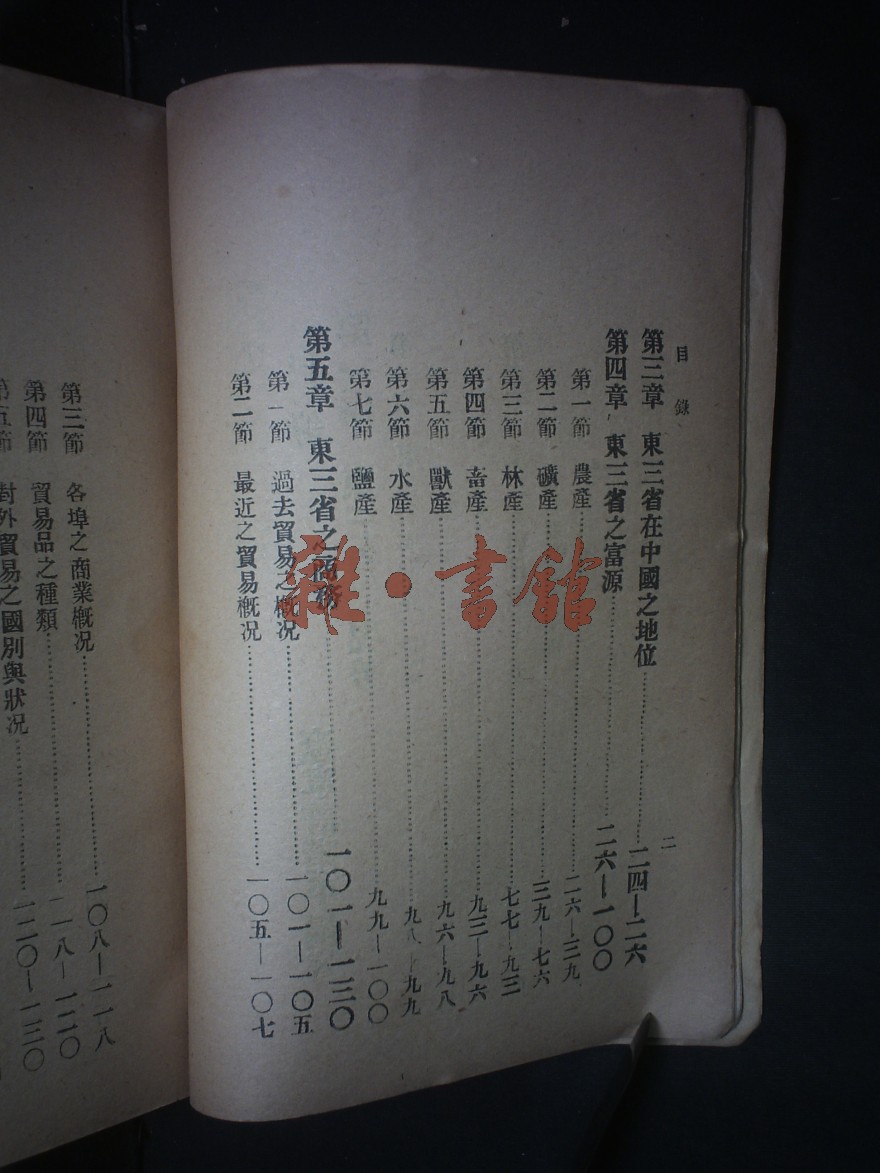 目錄
二
第三章 東三省在中國之地位……二四—二六
第四章 東三省之富源……二六—一〇〇
第一節 農產……二六—三九
第二節 礦產……三九—七六
第三節 林產……七七—九三
第四節 畜產……九三—九六
第五節 獸產……九六—九八
第六節 水產……九八—九九
第七節 鹽產……九九—一〇〇
第五章 東三省之商務……一〇一—一三〇
第一節 過去貿易之槪况……一〇一—一〇五
第二節 最近之貿易槪况……一〇五—一〇七
第三節 各埠之商業槪况……一〇八—一一八
第四節 貿易品之種類……一一八—一二〇
第五節 對外貿易之國別與狀况……一二〇—一三〇
雜·書館